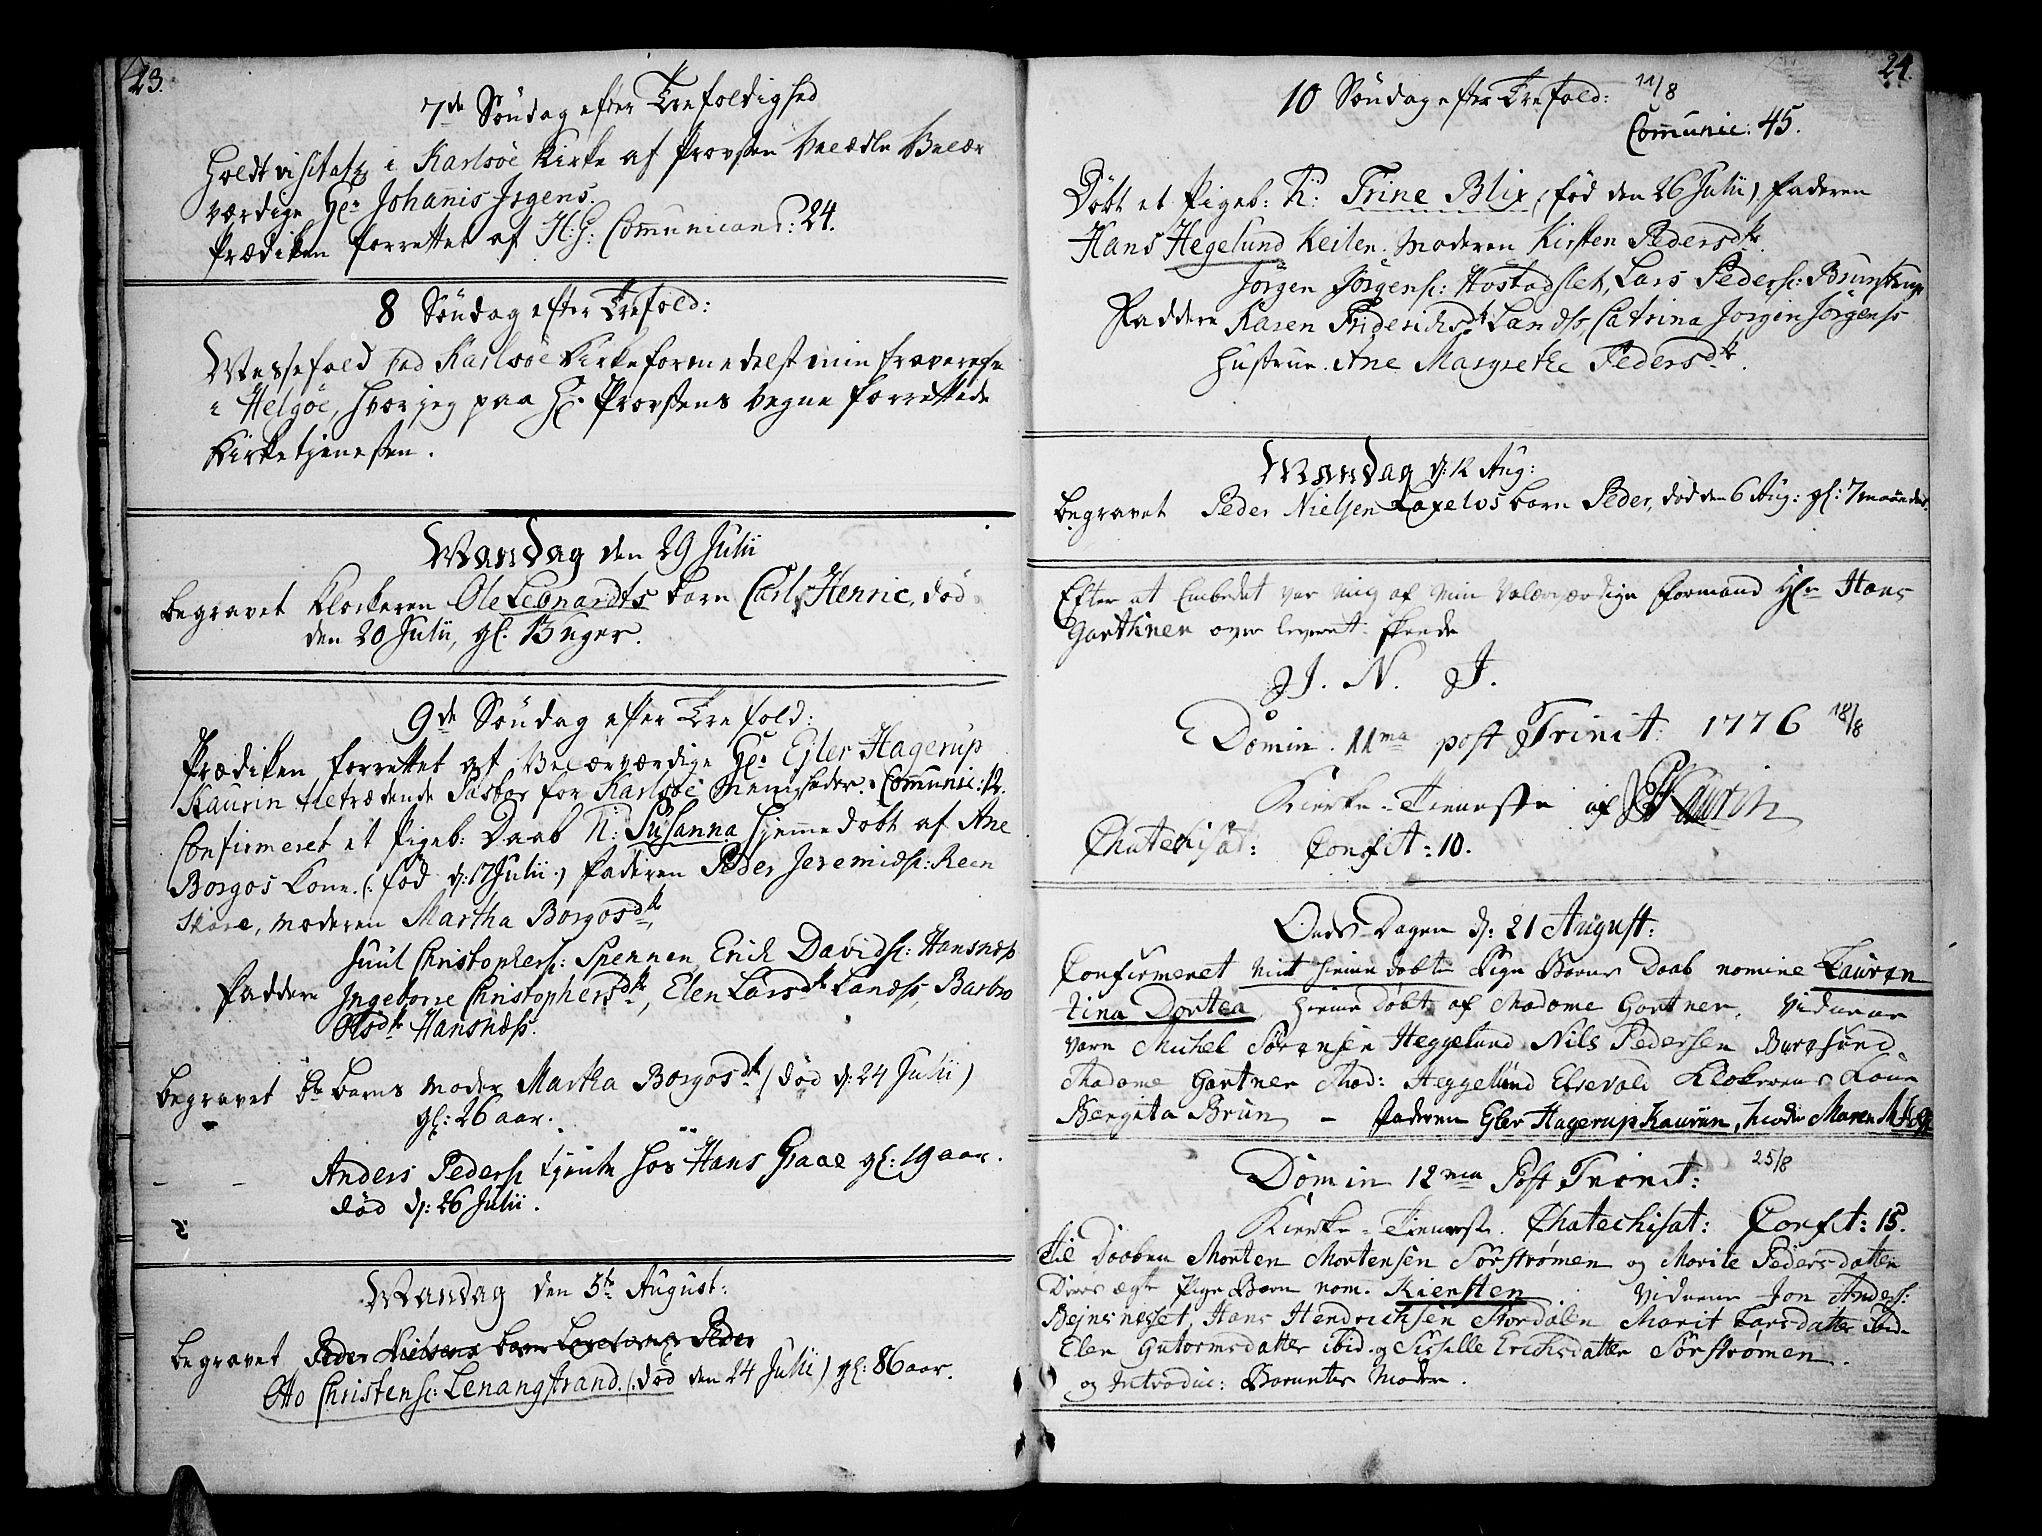 23.
7de Søndag efter Trefoldighed
Holdt visitatz i Karlsöe Kirke af Provsten Velædle Velær
værdige Hr. Johannis Jrgens.
Prædiken forrettet af H: G: Communicand: 24.
8 Søndag efter Trefold:
Messefald ved Karlsöe Kirke formedelst min fraværelse
i Helgöe, hvor jeg paa Hr. Provstens vegne forrettede
Kirketjenesten.
Mandag den 29 Julii
begravet Klockeren Ole Leonardts barn Carl Henric, död
den 20 Julii, gl: 13 uger.
9de Søndag efter Trefold:
Prædiken forrettet af Velærværdige Hr. Ejler Hagerup
Kaurin tiltrædende Pastor for Karlsöe Menigheder. Communic: 12.
Confirmeret et Pigeb: Daab N: Susanna hjemmedobt af Ane
Borgos Kone (: föd d: 17 Julii :) Faderen Peder Jeremidss: Reen
skare, moderen Martha Borgosdtr
Juul Christophers: Spennen Erich Davids: Hansnæss
Faddere Ingeborre Christophersdtr, Elen Larsdtr Landss Barbro
Olsdtr Hansnæss.
begravet Do barns moder Martha Borgosdtr (död d: 24 Julii)
gl: 26 aar.
- - Anders Peders: tjente hos Hans Graae gl: 19 aar.
död d: 26 Julii.
Mandag den 5te August:
begravet Peder Nielsens barn Peder
Otto Christens: Lenangstrand (: död den 24 Julii) gl: 86 aar.
24.
10 Søndag efter Trefold: 11/8
Communic: 45.
Döbt et Pigeb: N: Trine Blix, (föd den 26 Julii) Faderen
Hans Hegelund Keilen, Moderen Kirsten Pedersdtr.
Jörgen Jörgens: Hostadslet, Lars Peders:
Faddere Karen Friderichsdtr Landss, Catrina Jorgin Jörgenss
hustrue. Ane Margrethe Pedersdtr.
Mandag d: 12 Aug:
begravet Peder Nielsen barn Peder, död den 6 Aug: gl: 7 maaneder.
Efter at Embedet var mig af min Velærværdige Formand Hr. Hans
Garthner overleveret skeede
J. N. J.
Domin. 11ma post Trinit: 1776 18/8
Kierke-Tieneste af Kaurin
Chatechisat: Confit: 10.
Ons-Dagen d: 21 August:
Confirmeret mit hiemedobte Pige Barns Daab nomine Lauren
tina Dortea hiemedöbt af Madame Gartner, Vidnerne
vare Michel Sörensen Heggelund Nils Pedersen Burösund
Madame Gartner Mad: Heggelund Ebrevald Klokerens Kone
Bergita Brun - Faderen Ejler Hagerup Kaurin, Moder Maren
Domin 12ma Post Trinit: 25/8
Kierke-Tieneste. Chatechisat: Confit: 15.
Til Daaben Morten Mortensen Sörströmen og Morite Pedersdatter
Deres ægte Pige Barn nom. Kiersten Vidnerne Jon Anders:
Bejnsnesset, Hans Hendrichsen Stordalen Marit Larsdatter ibid.
Elen Gutormsdatter ibid. og Sissille Erichsdatter Sörströmen.
og Introduc: Barnetes Moder.